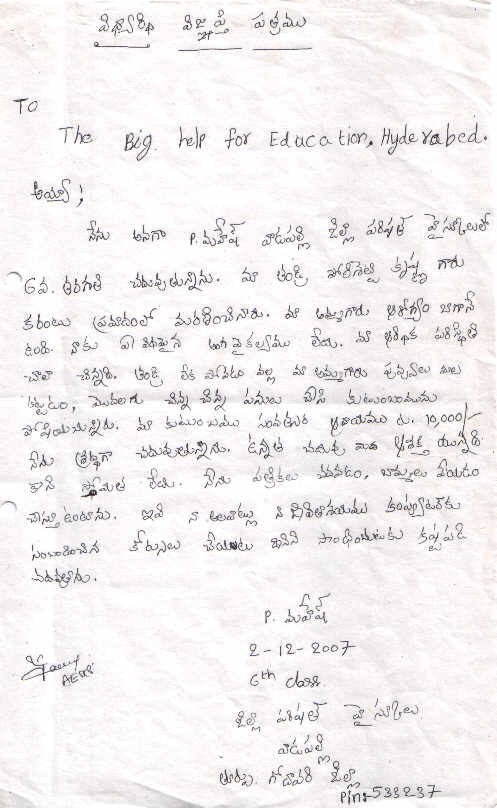 విద్యార్థి విజ్ఞప్తి పత్రము
TO
The Big help for Education, Hyderabed.
అయ్యా!
నేను అనగా P. మహేష్ వాడపల్లి జిల్లా పరిషత్ హైస్కూలులో
6వ. తరగతి చదువుతున్నాను. మా తండ్రి పోలిశెట్టి కృష్ణ గారు
కరంటు ప్రమాదంలో మరణించినారు. మా అమ్మగారు ఆరోగ్యం బాగానే
ఉంది. నాకు ఏ విధమైన అంగవైకల్యము లేదు. మా ఆర్థిక పరిస్థితి
చాలా చిన్నది. తండ్రి లేక పోవడం వల్ల మా అమ్మగారు పువ్వులు
కట్టడం, మొదలగు చిన్న చిన్న పనులు చేసి కుటుంబామును
పోషియిచున్నారు. మా కుటుంబము సంవత్సర ఆదాయము రు. 10,000/-
నేను శ్రద్ధగా చదువుతున్నాను. ఉన్నత చదువు మీద ఆసక్తి యున్నది
కాని స్తోమత లేదు. నేను పత్రికలు చదవడం, బొమ్మలు వేయడం
చేస్తూ ఉంటాను. ఇవి నా అలవాట్లు నా జీవితాశయము కంప్యూటర్‌కు
సంబంధించిన కోరుసులు చేయుట దీనిని సాధించుటకు కష్టపడి
చదువుతాను.
P. మహేష్
2-12-2007
6th class.
జిల్లా పరిషత్ హై స్కూలు.
వాడపల్లి
తూర్పు గోదావరి జిల్లా
Pin:-533237